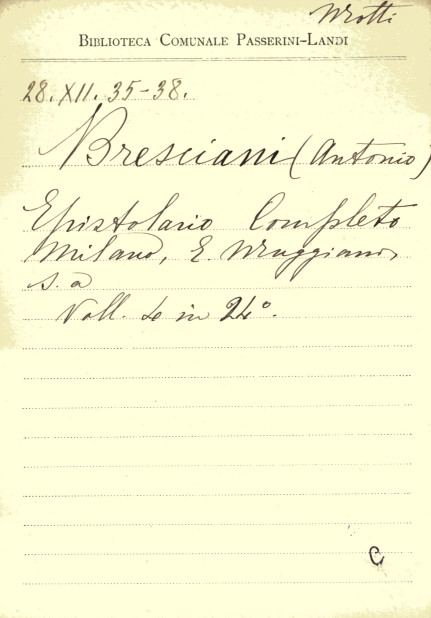 Mrotti
BIBLIOTECA COMUNALE PASSERINI-LANDI
28. XII. 35-38.
Bresciani (Antonio)
Epistolario Completo
Milano, E. Muggiani,
s. a
Voll. 4 in 24°.
C